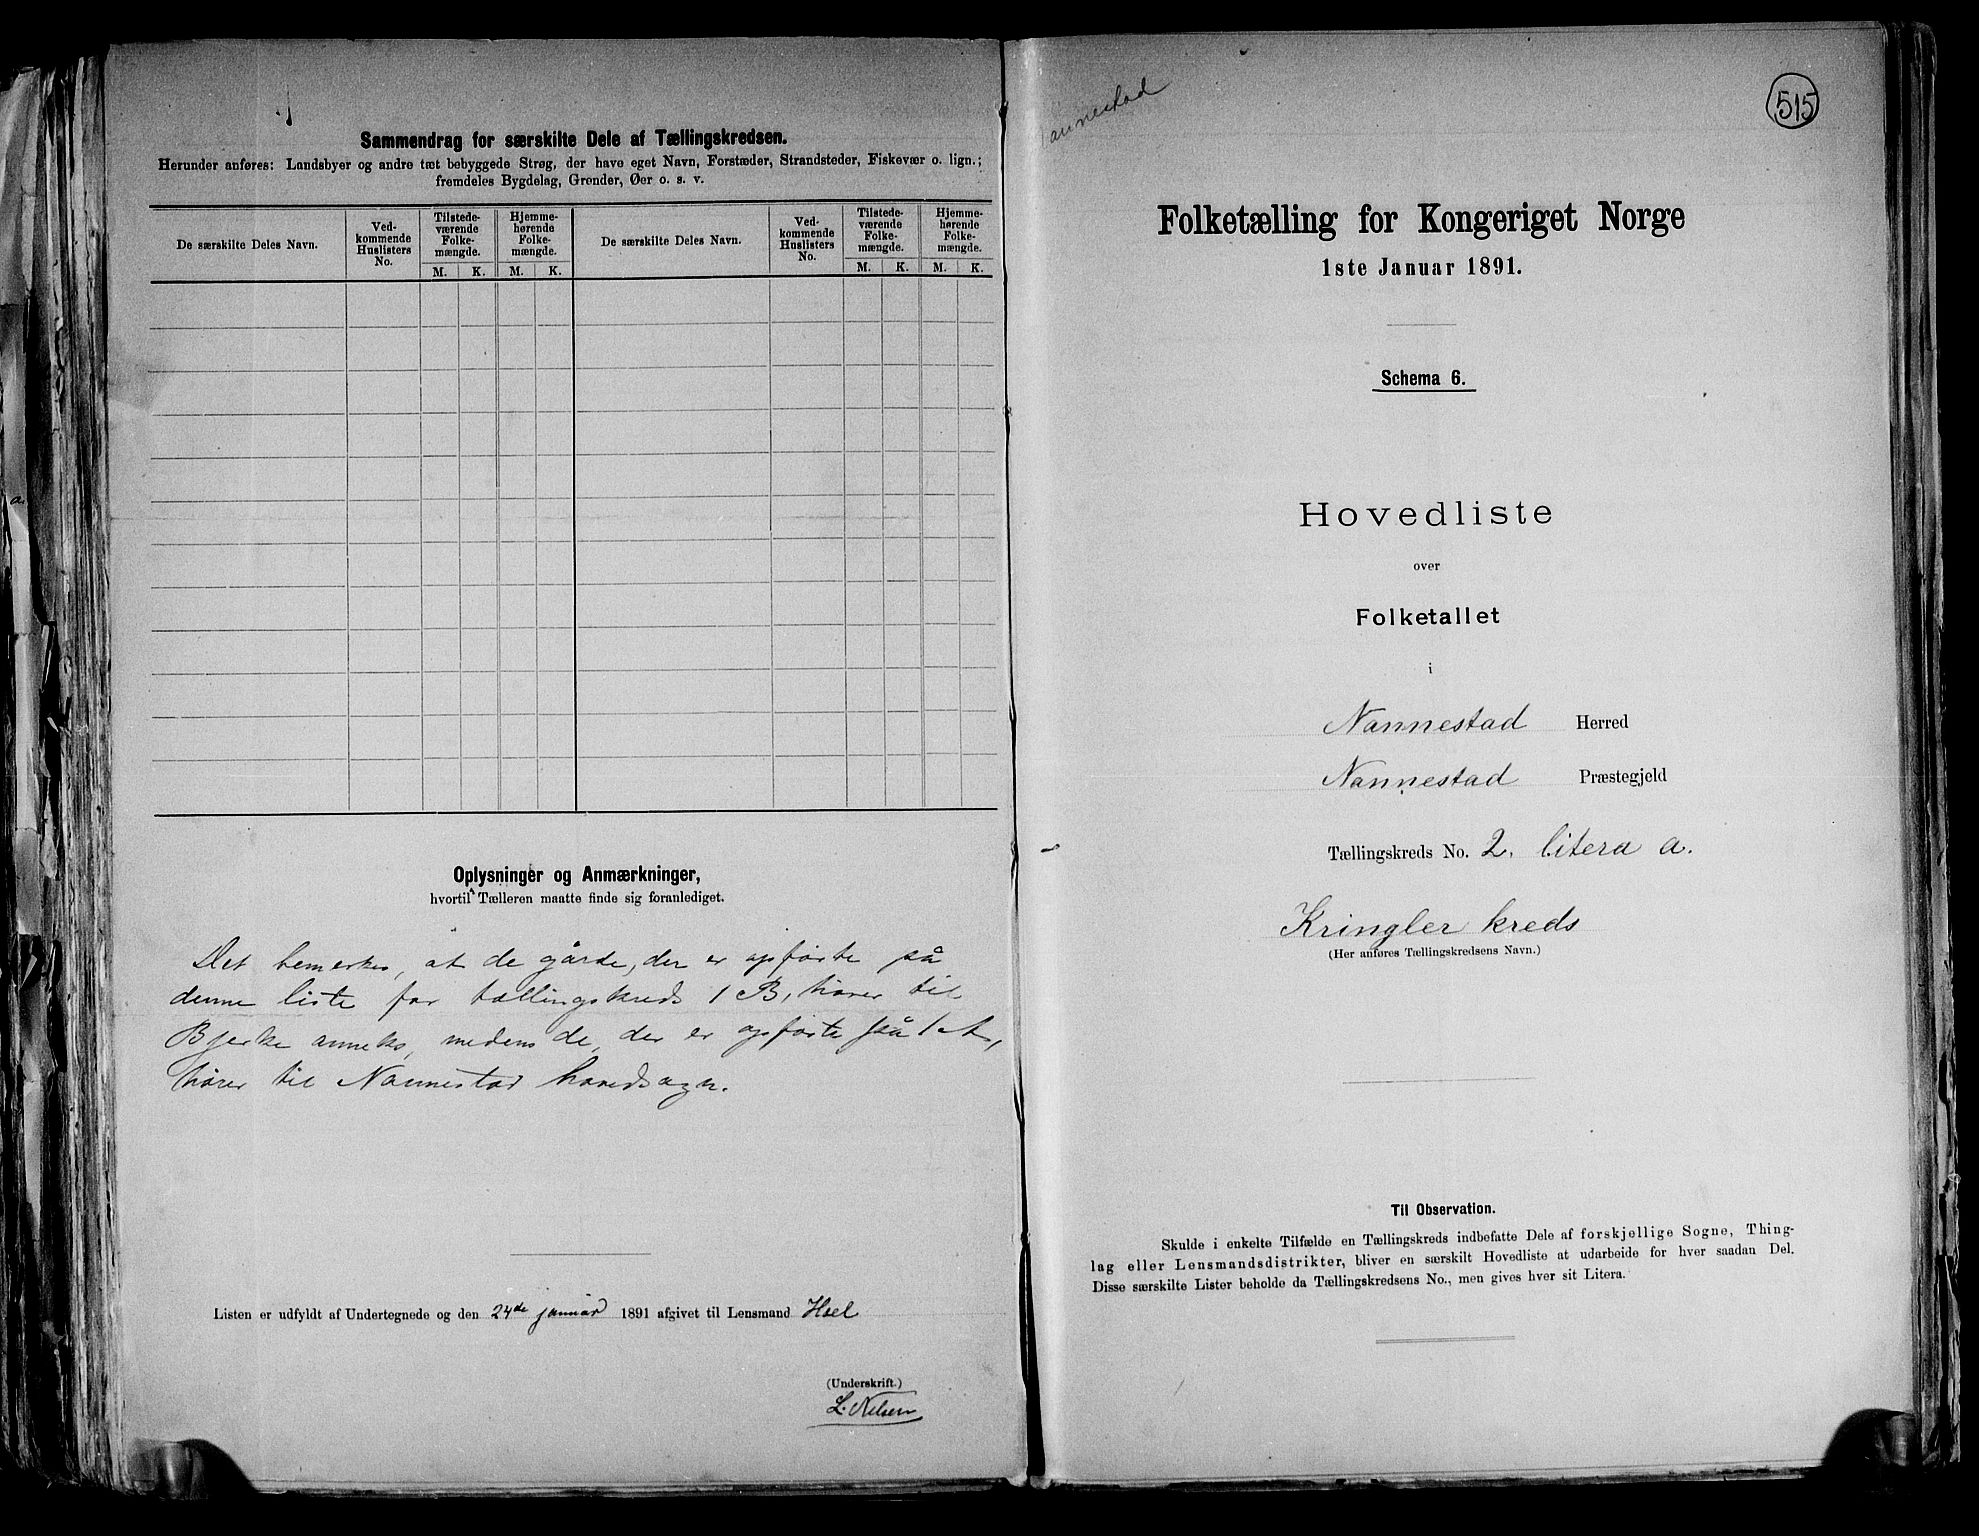 Sammendrag for særskilte Dele af Tællingskredsen.
Herunder anføres: Landsbyer og andre tæt bebyggede Strøg, der have eget Navn, Forstæder, Strandsteder, Fiskevær o. lign.;
fremdeles Bygdelag, Grender, Øer o. s. v.
De særskilte Deles Navn.
Ved-
kommende
Huslisters
No.
Tilstede-
værende
Folke-
mængde.
M. K.
Hjemme-
hørende
Folke-
mængde.
M. K.
De særskilte Deles Navn.
Ved-
kommende
Huslisters
No.
Tilstede-
værende
Folke-
mængde.
M. K.
Hjemme-
hørende
Folke-
mængde.
M. K.
Oplysninger og Anmærkninger,
hvortil Tælleren maatte finde sig foranlediget.
Det bemerkes, at de gårde, der er opførte på
denne liste for tællingskreds 1 B, hører til
Bjerke anneks, medens de, der er opførte på 1 A,
hører til Nannestad hovedsogn.
Listen er udfyldt af Undertegnede og den 24de januar 1891 afgivet til Lensmand Hoel
(Underskrift.)
L. Nelsen
annestad
515
Folketælling for Kongeriget Norge
1ste Januar 1891.
Schema 6.
Hovedliste
over
Folketallet
i
Nannestad Herred
Nannestad Præstegjeld
Tællingskreds No. 2. litera a.
Kringler kreds
(Her anføres Tællingskredsens Navn.)
Til Observation.
Skulde i enkelte Tilfælde en Tællingskreds indbefatte Dele af forskjellige Sogne, Thing-
lag eller Lensmandsdistrikter, bliver en særskilt Hovedliste at udarbeide for hver saadan Del.
Disse særskilte Lister beholde da Tællingskredsens No., men gives hver sit Litera.